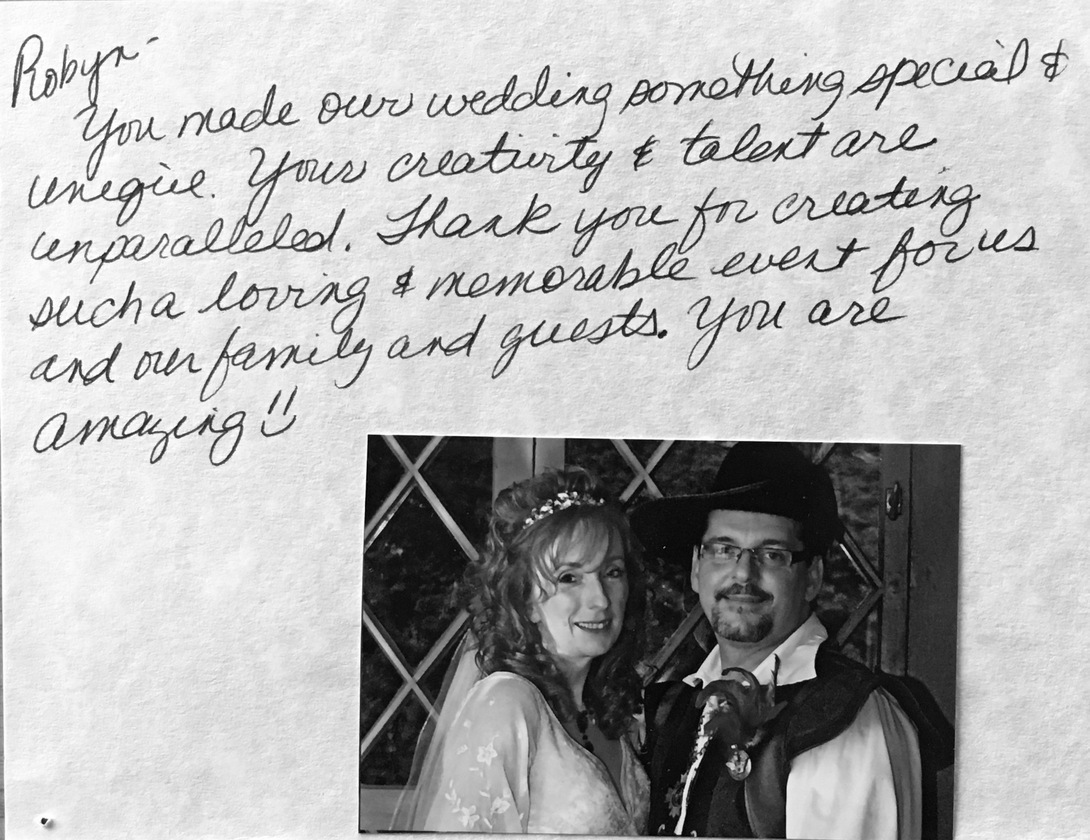 Robyn-
You made our wedding something special &
unique. Your creativity & talent are
unparalleled. Thank you for creating
such a loving & memorable event for us
and our family and guests. You are
amazing!!